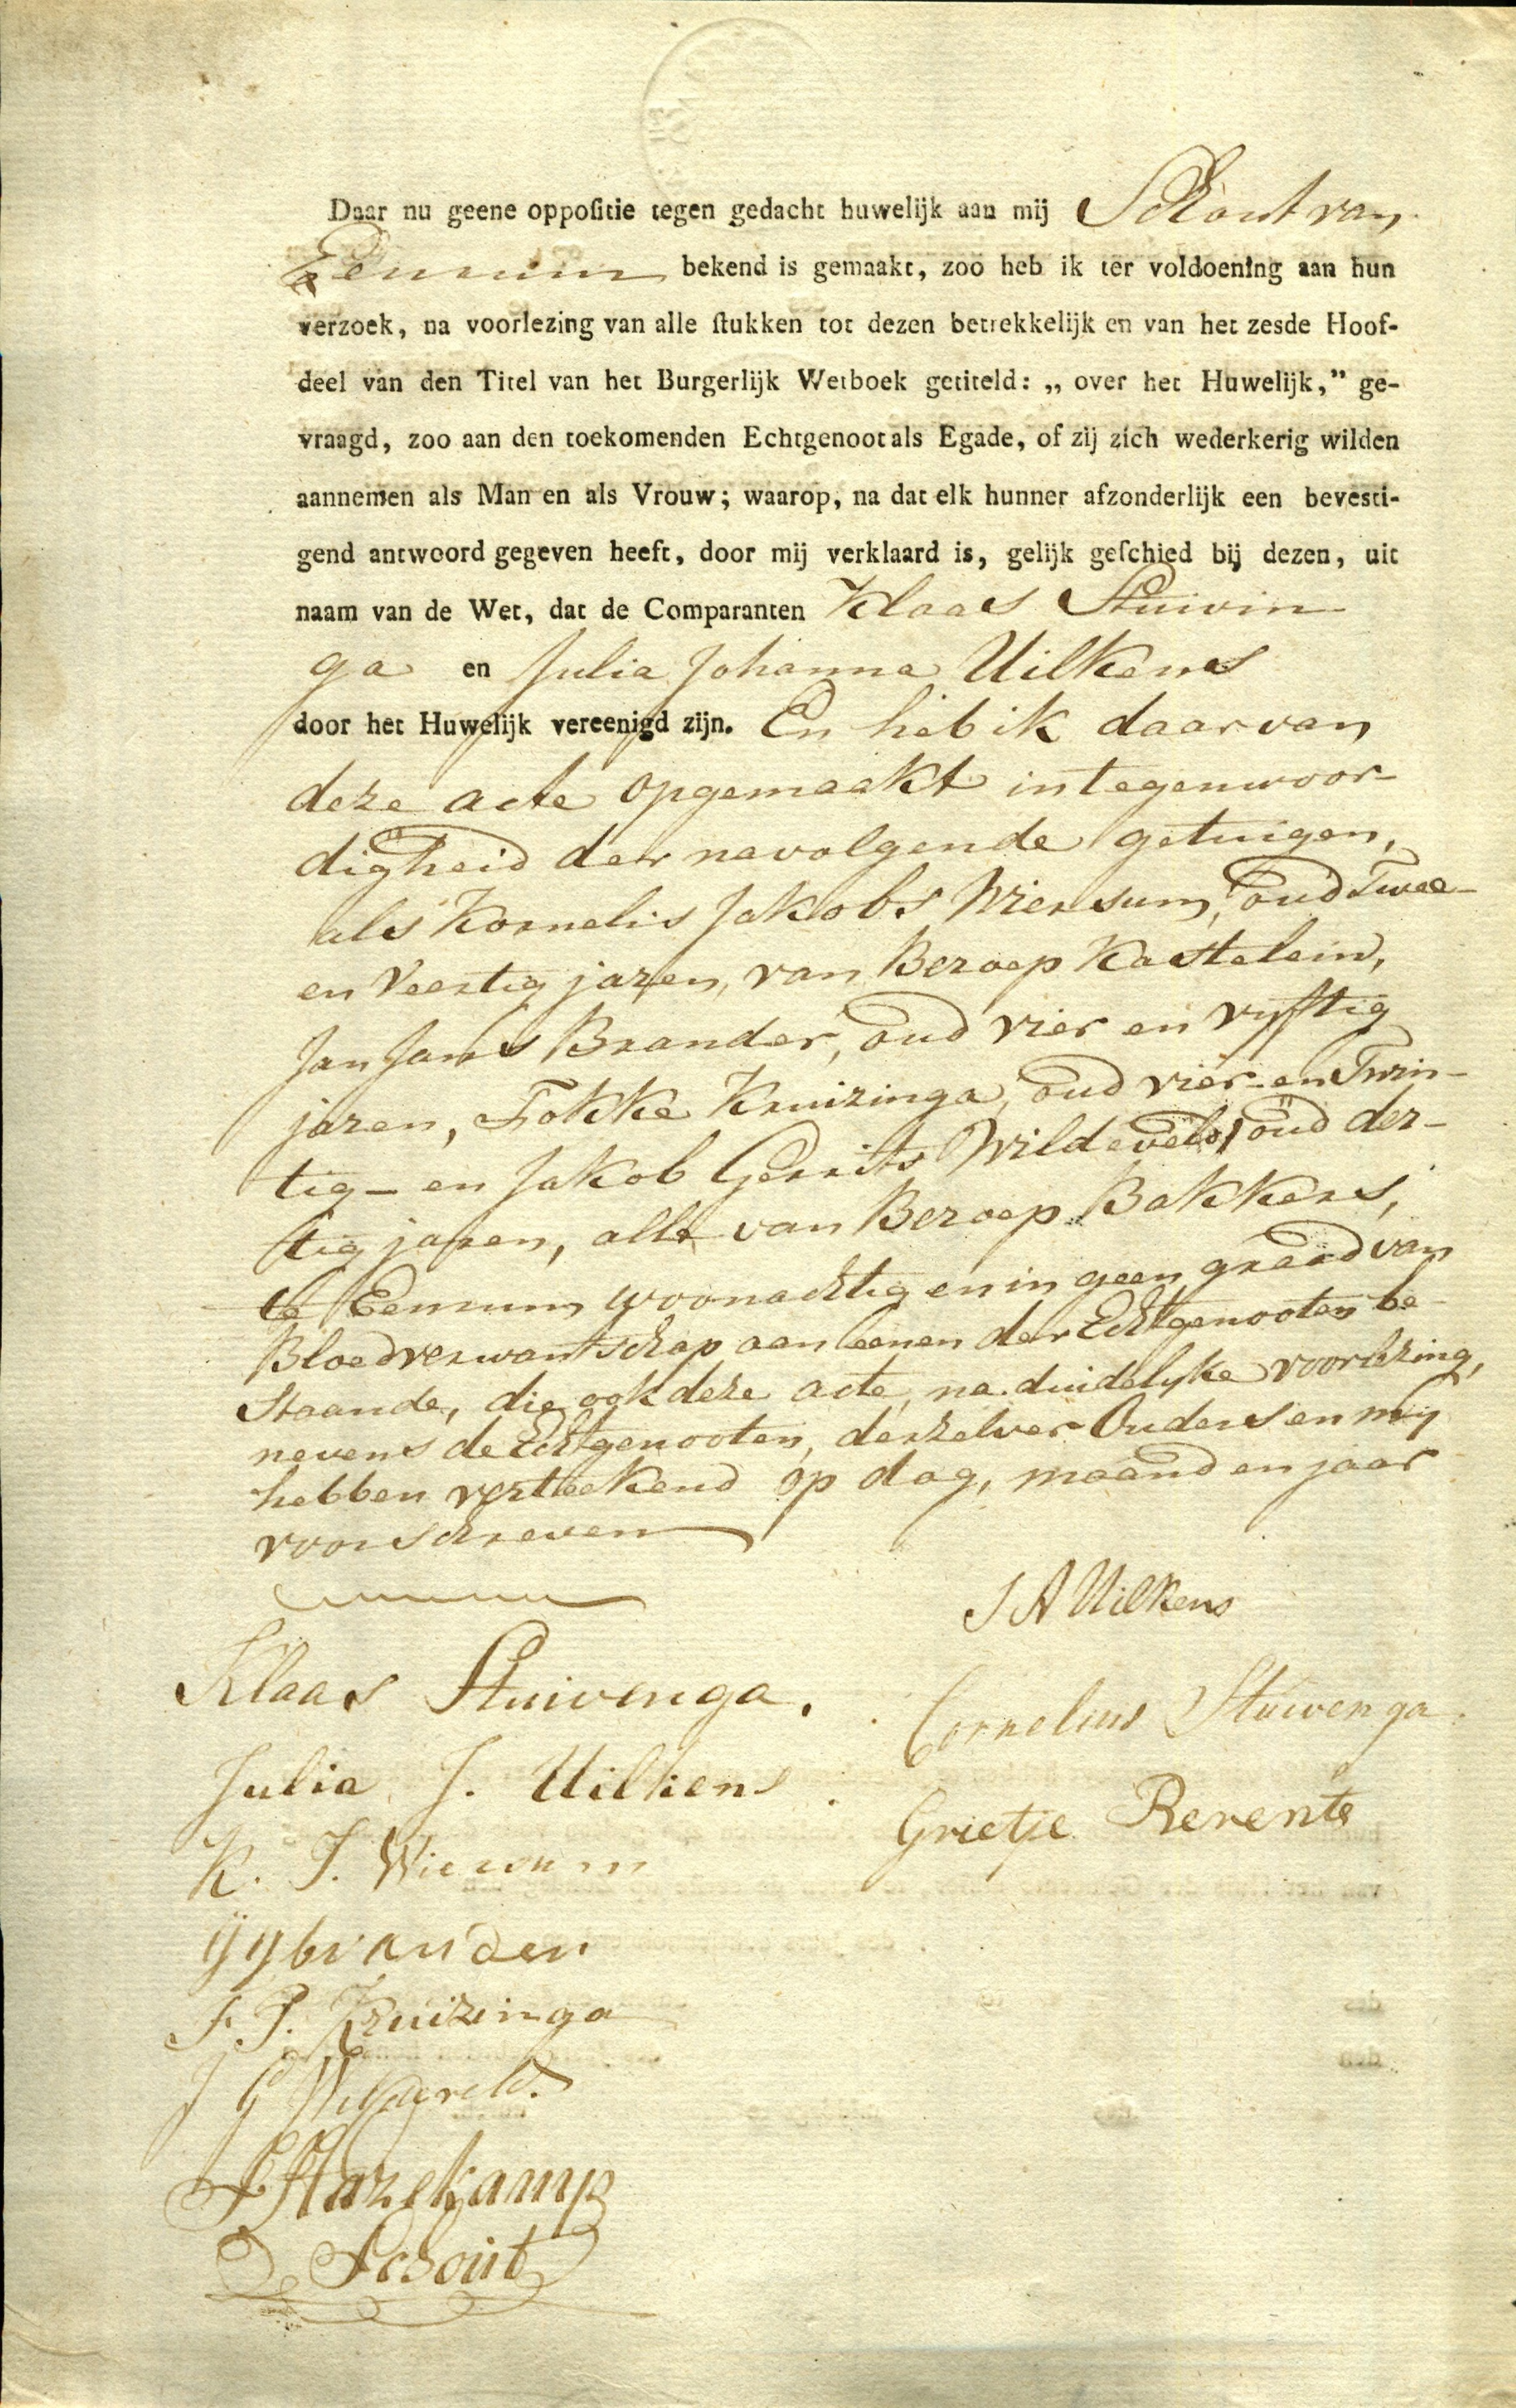 Daar nu geene oppoſitie tegen gedacht huwelijk aan mij Schout van
Eenrum bekend is gemaakt, zoo heb ik ter voldoening aan hun
verzoek, na voorlezing van alle ſtukken tot dezen betrekkelijk en van het zesde Hoof-
deel van den Titel van het Burgerlijk Wetboek getiteld: „ over het Huwelijk,” ge-
vraagd, zoo aan den toekomenden Echtgenoot als Egade, of zij zich wederkerig wilden
aannemen als Man en als Vrouw; waarop, na dat elk hunner afzonderlijk een bevesti-
gend antwoord gegeven heeft, door mij verklaard is, gelijk geſchied bij dezen, uit
naam van de Wet, dat de Comparanten Klaas Stuivin
ga en Julia Johanna Uilkens
door het Huwelijk vereenigd zijn. En heb ik daarvan
deze acte opgemaakt in tegenwoor-
digheid der navolgende getuigen,
als Kornelis Jakobs Wiersum, oud Twee-
en Veertig jaren, van Beroep Kastelein,
Jan Jans Brander, oud vier en vyftig
jaren, Fokke Kruizinga, oud vier en Twin-
tig - en Jakob Gerrits Wildeveld, oud der-
tig jaren, alle van Beroep Bakkers,
te Eenrum woonachtig en in geen graad van
Bloedverwantschap aan eenen der Echtgenooten be-
staande, die ook deze acte, na duidelyke voorlezing,
nevens de Echtgenooten, derzelver Ouders en my
hebben verteekend op dag, maand en jaar
voorschreven
J A Uilkens
Klaas Stuivenga.
Cornelius Stuivenga.
Julia J. Uilkens
Grietje Rerents
K. J. Wiersum
F. P. Kruizinga
J G Wildeveld.
Hazekamp
Schout